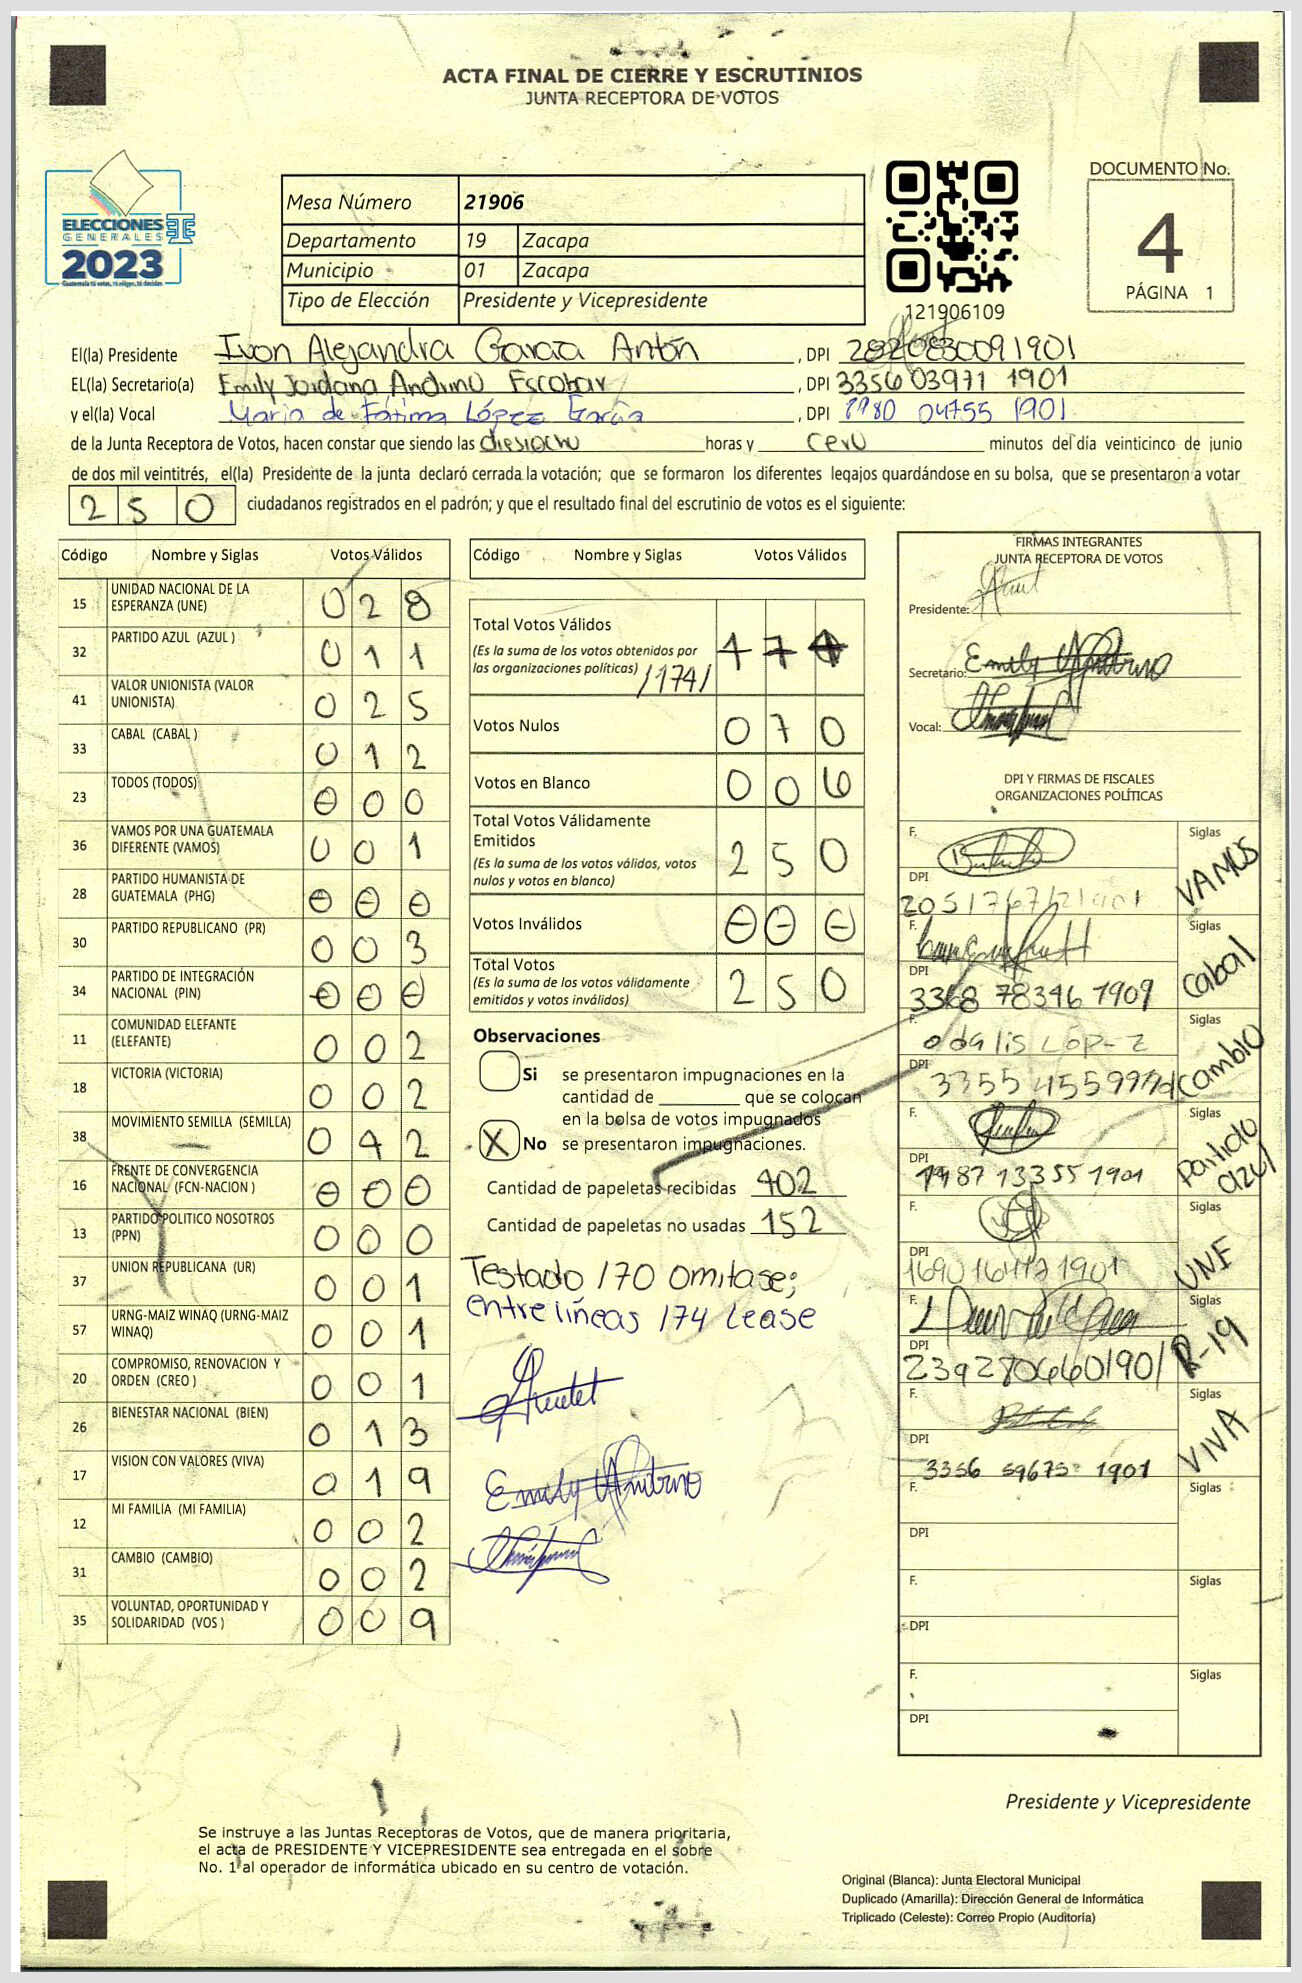 ACTA FINAL DE CIERRE Y ESCRUTINIOS
JUNTA RECEPTORA DE VOTOS
ELECCIONES
GENERALES
2023
Mesa Número 21906
Departamento 19 Zacapa
Municipio 01 Zacapa
Tipo de Elección Presidente y Vicepresidente
121906109
DOCUMENTO No.
4
PÁGINA 1
El(la) Presidente Ivon Alejandra García Antón , DPI
EL(la) Secretario(a) Emily Jordana Andino Escobar , DPI 3356 03971 1901
y el(la) Vocal Maria de Fátima López García , DPI 04755 1901
de la Junta Receptora de Votos, hacen constar que siendo las diesiocho horas y cero minutos del día veinticinco de junio
de dos mil veintitrés, el(la) Presidente de la junta declaró cerrada la votación; que se formaron los diferentes legajos guardándose en su bolsa, que se presentaron a votar
250 ciudadanos registrados en el padrón; y que el resultado final del escrutinio de votos es el siguiente:
Código Nombre y Siglas Votos Válidos
15 UNIDAD NACIONAL DE LA ESPERANZA (UNE) 028
32 PARTIDO AZUL (AZUL ) 011
41 VALOR UNIONISTA (VALOR UNIONISTA) 025
33 CABAL (CABAL ) 012
23 TODOS (TODOS) 000
36 VAMOS POR UNA GUATEMALA DIFERENTE (VAMOS) 001
28 PARTIDO HUMANISTA DE GUATEMALA (PHG) 000
30 PARTIDO REPUBLICANO (PR) 003
34 PARTIDO DE INTEGRACIÓN NACIONAL (PIN) 000
11 COMUNIDAD ELEFANTE (ELEFANTE) 002
18 VICTORIA (VICTORIA) 002
38 MOVIMIENTO SEMILLA (SEMILLA) 042
16 FRENTE DE CONVERGENCIA NACIONAL (FCN-NACION ) 000
13 PARTIDO POLITICO NOSOTROS (PPN) 000
37 UNION REPUBLICANA (UR) 001
57 URNG-MAIZ WINAQ (URNG-MAIZ WINAQ) 001
20 COMPROMISO, RENOVACION Y ORDEN (CREO ) 001
26 BIENESTAR NACIONAL (BIEN) 013
17 VISION CON VALORES (VIVA) 019
12 MI FAMILIA (MI FAMILIA) 002
31 CAMBIO (CAMBIO) 002
35 VOLUNTAD, OPORTUNIDAD Y SOLIDARIDAD (VOS ) 009
Código Nombre y Siglas Votos Válidos
Total Votos Válidos
(Es la suma de los votos obtenidos por
las organizaciones políticas) /174/
Votos Nulos 070
Votos en Blanco 006
Total Votos Válidamente
Emitidos 250
(Es la suma de los votos válidos, votos
nulos y votos en blanco)
Votos Inválidos 000
Total Votos 250
(Es la suma de los votos válidamente
emitidos y votos inválidos)
Observaciones
Si se presentaron impugnaciones en la
cantidad de ________ que se colocan
en la bolsa de votos impugnados
X No se presentaron impugnaciones.
Cantidad de papeletas recibidas 402
Cantidad de papeletas no usadas 152
Testado 170 Omitase;
entre líneas 174 Lease
Emily Andino
FIRMAS INTEGRANTES
JUNTA RECEPTORA DE VOTOS
Presidente:
Secretario: Emily Andino
Vocal:
DPI Y FIRMAS DE FISCALES
ORGANIZACIONES POLÍTICAS
F. Siglas VAMOS
DPI
F. Siglas Cabal
DPI 3368 78346 1909
F. odalis López Siglas Cambio
DPI
F. Siglas Partido azul
DPI 1987 13355 1901
F. Siglas UNE
DPI
F. Siglas R-19
DPI 2392806601901
F. Siglas VIVA
DPI 3356 59675 1901
F. Siglas
DPI
F. Siglas
DPI
F. Siglas
DPI
Presidente y Vicepresidente
Se instruye a las Juntas Receptoras de Votos, que de manera prioritaria,
el acta de PRESIDENTE Y VICEPRESIDENTE sea entregada en el sobre
No. 1 al operador de informática ubicado en su centro de votación.
Original (Blanca): Junta Electoral Municipal
Duplicado (Amarilla): Dirección General de Informática
Triplicado (Celeste): Correo Propio (Auditoría)